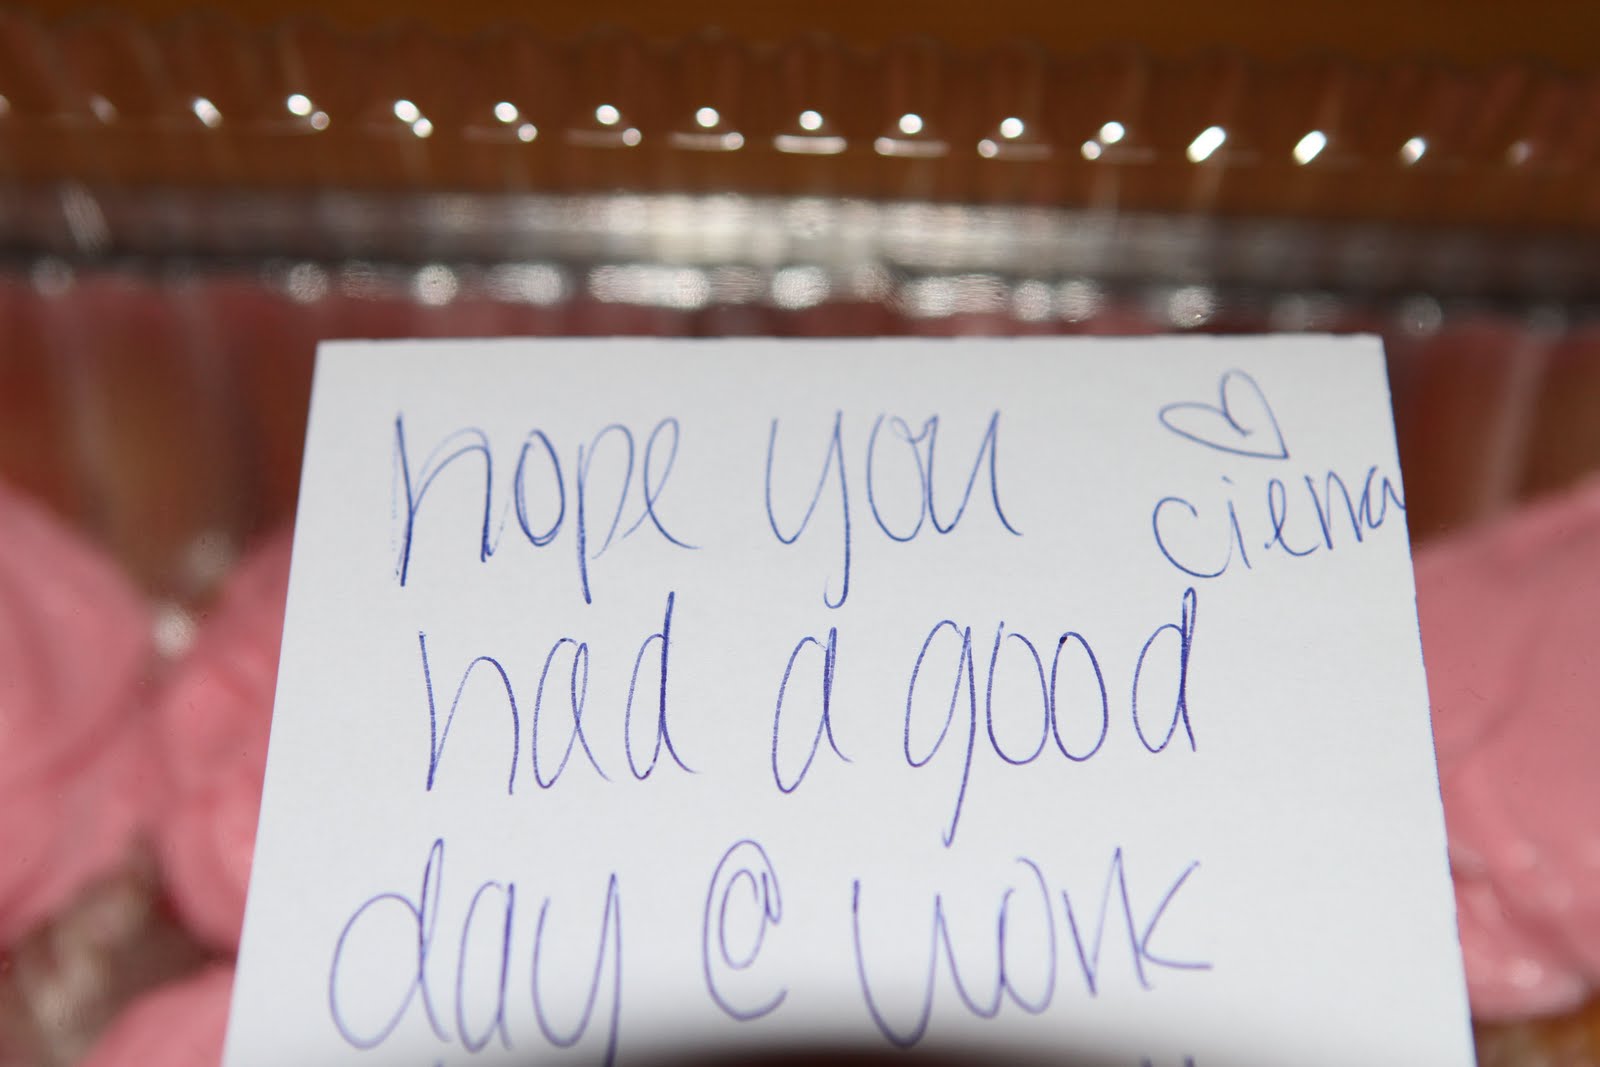 hope you
♡ ciena
had a good
day @ work